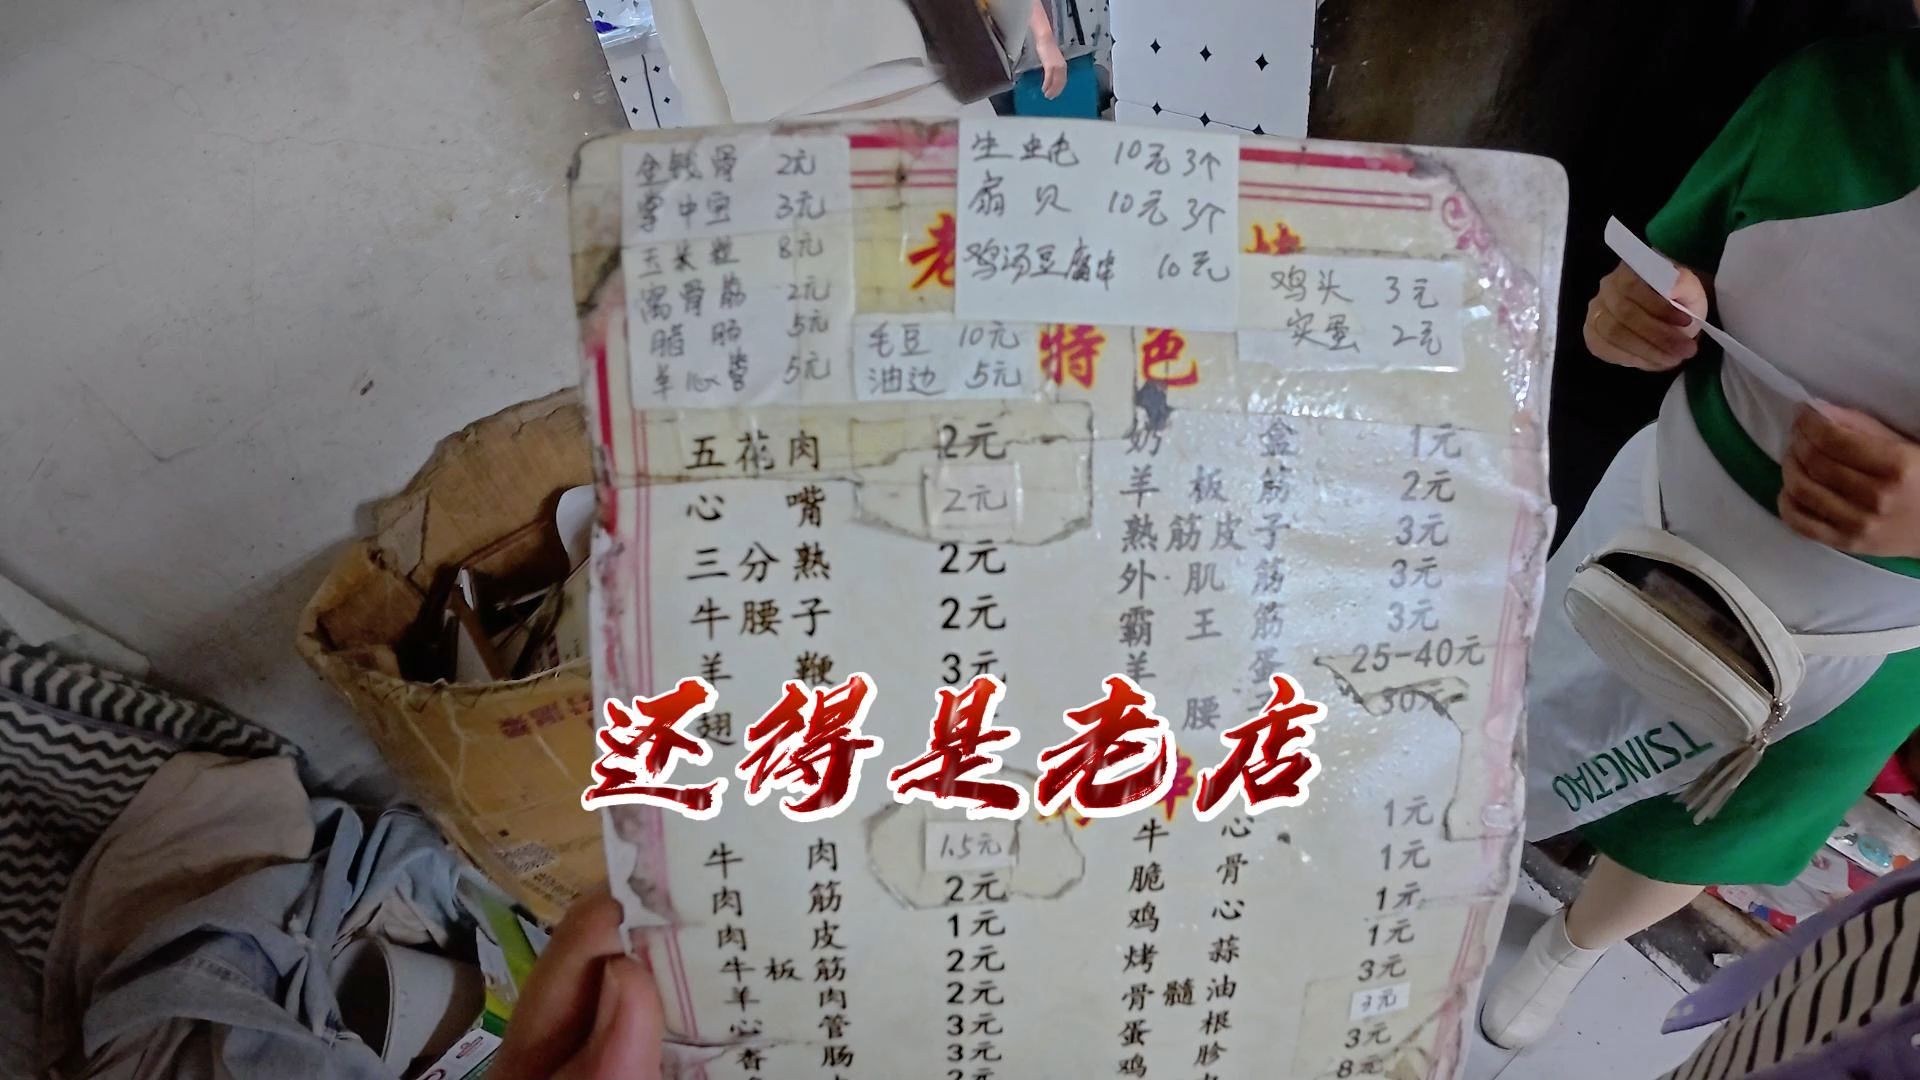 金钱骨 2元
掌中宝 3元
玉米粒 8元
窝骨筋 2元
腊肠 5元
羊心管 5元
生蚝 10元3个
扇贝 10元3个
鸡汤豆腐串 10元
鸡头 3元
实蛋 2元
毛豆 10元
油边 5元
老
烤
特色
五花肉 2元
心嘴 2元
三分熟 2元
牛腰子 2元
羊鞭 3元
翅
奶盒 1元
羊板筋 2元
熟筋皮子 3元
外肌筋 3元
霸王筋 3元
羊蛋 25-40元
腰子 30元
还得是老店
串
牛肉 1.5元
肉筋 2元
肉皮 1元
牛板筋 2元
羊肉 2元
心管 3元
香肠 3元
2元
牛心 1元
脆骨 1元
鸡心 1元
烤蒜 1元
骨髓油 3元
蛋根 3元
鸡胗 3元
8元
TSINGTAO